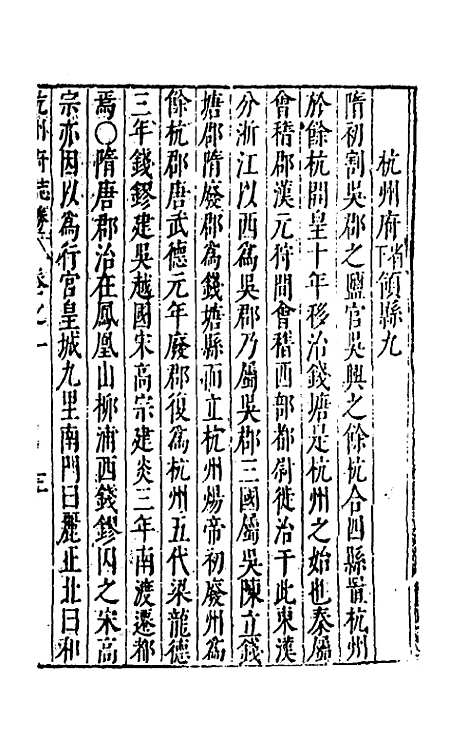 杭州府領縣九
隋初割吳郡之鹽官吳興之餘杭合四縣置杭州
於餘杭開皇十年移治錢塘是杭州之始也秦屬
會稽郡漢元狩間會稽西部都尉徙治于此東漢
分浙江以西爲吳郡乃屬吳郡三國屬吳陳立錢
塘郡隋廢郡爲錢塘縣而立杭州煬帝初廢州爲
餘杭郡唐武德元年廢郡復爲杭州五代梁龍德
三年錢鏐建吳越國宋高宗建炎三年南渡遷都
焉○隋唐郡治在鳳凰山柳浦西錢鏐因之宋高
宗亦因以爲行宮皇城九里南門曰麗正北曰和
杭州府志 卷之一 三